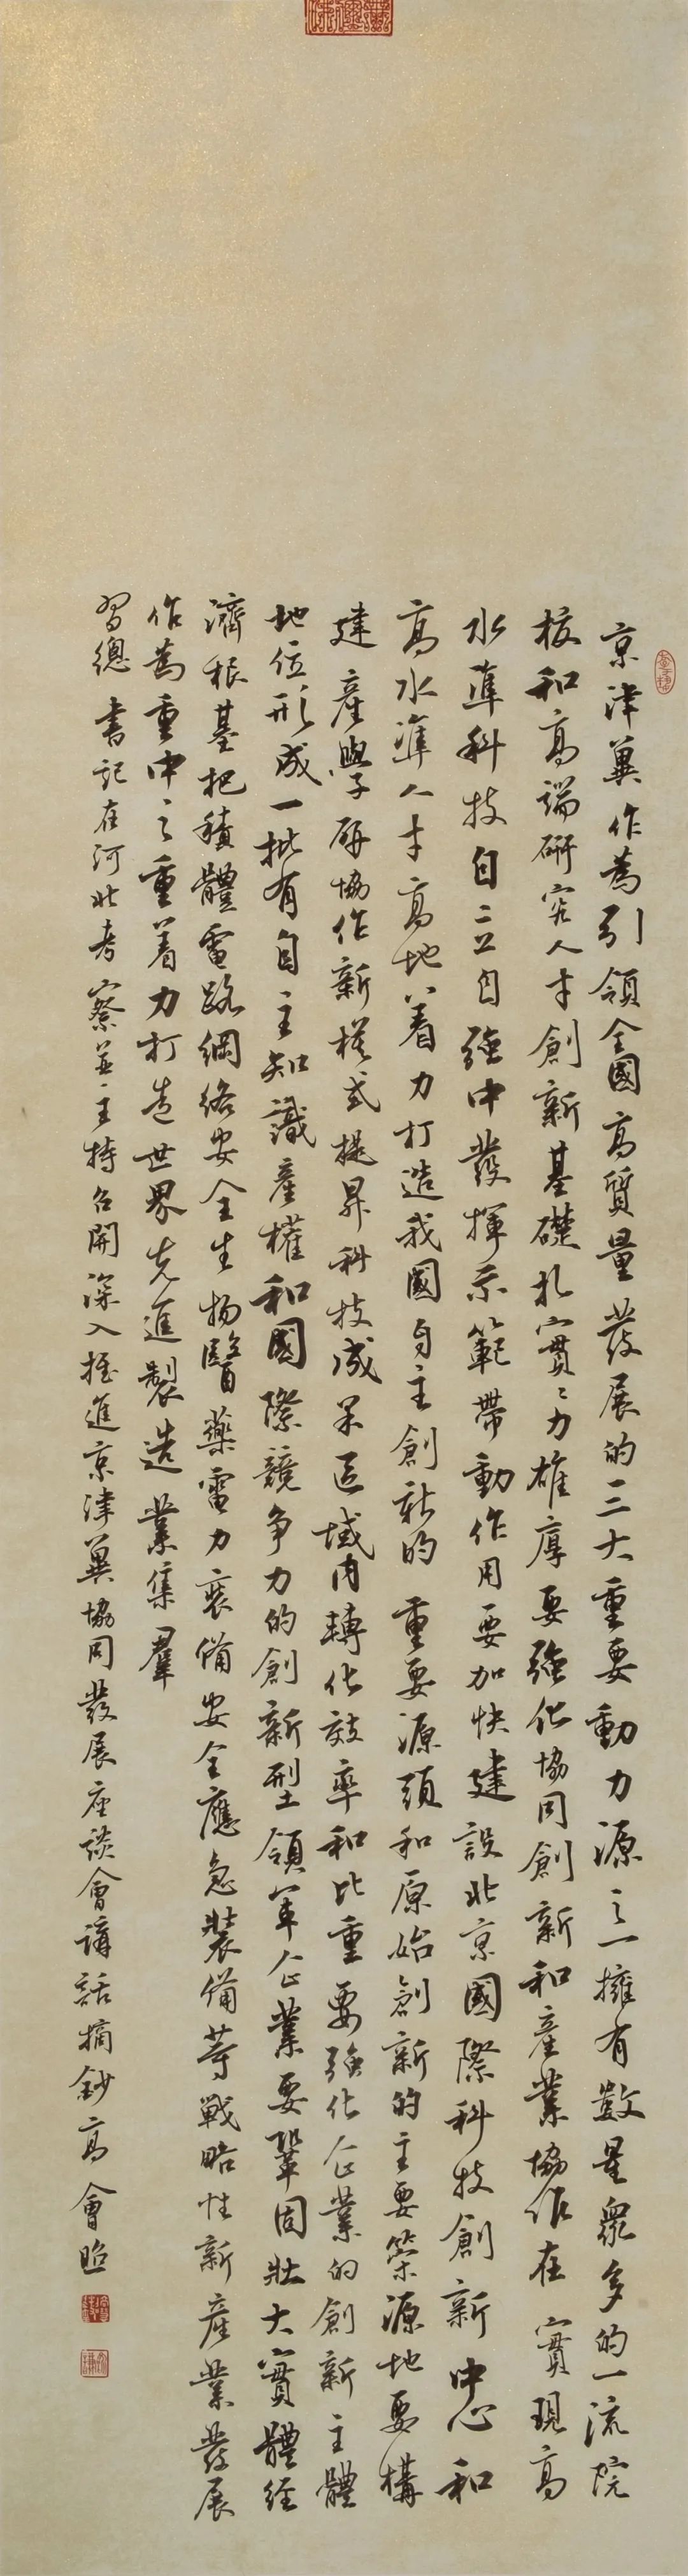 京津冀作為引領全國高質量發展的三大重要動力源之一擁有數量眾多的一流院
校和高端研究人才創新基礎扎實實力雄厚要強化協同創新和產業協作在實現高
水準科技自立自強中發揮示範帶動作用要加快建設北京國際科技創新中心和
高水準人才高地着力打造我國自主創新的重要源頭和原始創新的主要策源地要構
建產學研協作新模式提昇科技成果區域內轉化效率和比重要強化企業的創新主體
地位形成一批有自主知識產權和國際競爭力的創新型領軍企業要鞏固壯大實體經
濟根基把積體電路網絡安全生物醫藥電力裝備安全應急裝備等戰略性新產業發展
作為重中之重着力打造世界先進製造業集羣
習總書記在河北考察並主持召開深入推進京津冀協同發展座談會講話摘鈔高會昭